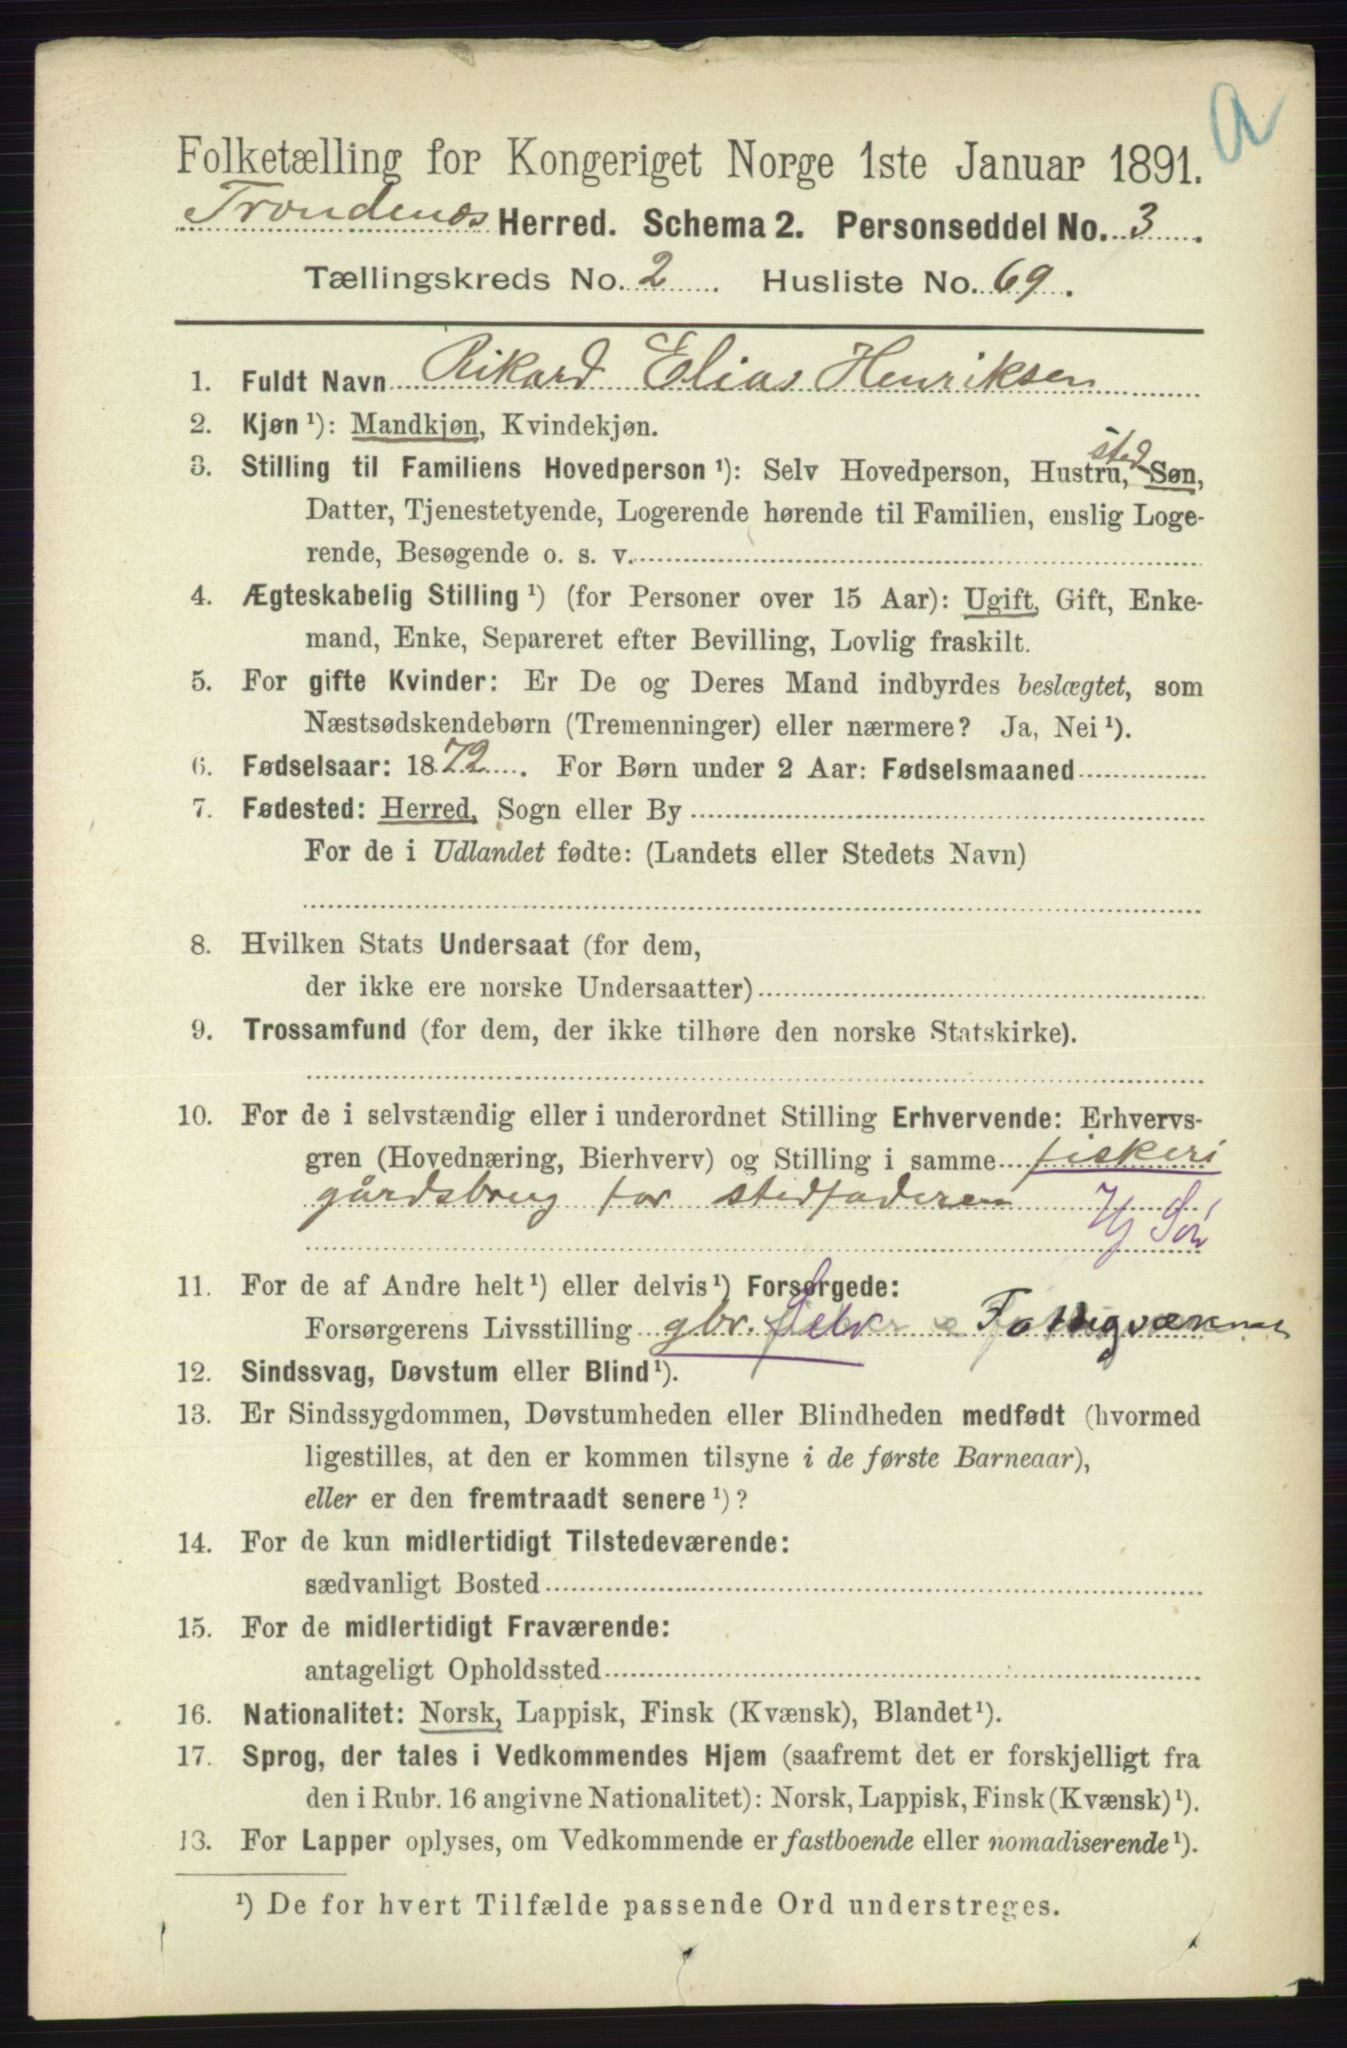 a
Folketælling for Kongeriget Norge 1ste Januar 1891.
Trondenæs Herred. Schema 2. Personseddel No. 3.
Tællingskreds No. 2. Husliste No. 69.
1. Fuldt Navn Rikard Elias Henriksen
2. Kjøn ¹): Mandkjøn, Kvindekjøn.
sted
3. Stilling til Familiens Hovedperson ¹): Selv Hovedperson, Hustru, Søn,
Datter, Tjenestetyende, Logerende hørende til Familien, enslig Loge-
rende, Besøgende o. s. v.
4. Ægteskabelig Stilling ¹) (for Personer over 15 Aar): Ugift, Gift, Enke-
mand, Enke, Separeret efter Bevilling, Lovlig fraskilt.
5. For gifte Kvinder: Er De og Deres Mand indbyrdes beslægtet, som
Næstsødskendebørn (Tremenninger) eller nærmere? Ja, Nei ¹).
6. Fødselsaar: 1872. For Børn under 2 Aar: Fødselsmaaned
7. Fødested: Herred, Sogn eller By
For de i Udlandet fødte: (Landets eller Stedets Navn)
8. Hvilken Stats Undersaat (for dem,
der ikke ere norske Undersaatter)
9. Trossamfund (for dem, der ikke tilhøre den norske Statskirke).
10. For de i selvstændig eller i underordnet Stilling Erhvervende: Erhvervs-
gren (Hovednæring, Bierhverv) og Stilling i samme fiskeri
gårdsbrug for stedfaderen
Hj Søn
11. For de af Andre helt ¹) eller delvis ¹) Forsørgede:
Forsørgerens Livsstilling gbr. Selv
12. Sindssvag, Døvstum eller Blind ¹).
13. Er Sindssygdommen, Døvstumheden eller Blindheden medfødt (hvormed
ligestilles, at den er kommen tilsyne i de første Barneaar),
eller er den fremtraadt senere ¹)?
14. For de kun midlertidigt Tilstedeværende:
sædvanligt Bosted
15. For de midlertidigt Fraværende:
antageligt Opholdssted
16. Nationalitet: Norsk, Lappisk, Finsk (Kvænsk), Blandet ¹).
17. Sprog, der tales i Vedkommendes Hjem (saafremt det er forskjelligt fra
den i Rubr. 16 angivne Nationalitet): Norsk, Lappisk, Finsk (Kvænsk) ¹).
18. For Lapper oplyses, om Vedkommende er fastboende eller nomadiserende ¹).
¹) De for hvert Tilfælde passende Ord understreges.